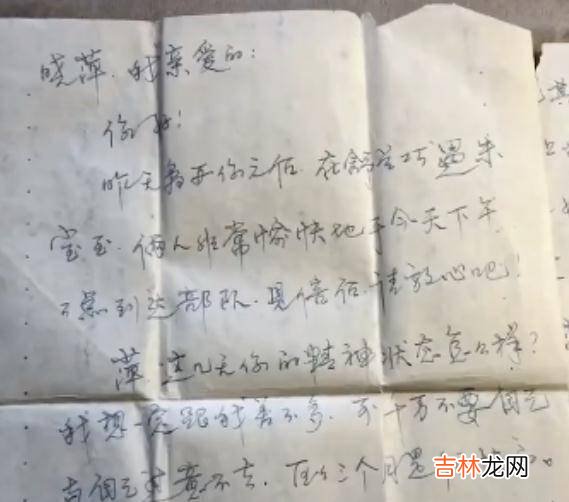 晓萍，我亲爱的：
你好！
昨天离开你之后，在 巧遇朱
宝玉，俩人非常愉快地于今天下午
2点到达部队，见信后，请放心吧！
萍，这几天你的精神状态怎么样？
我想一定跟我差不多，可千万不要自己
与自己过意不去，
三个月
吉林龙网